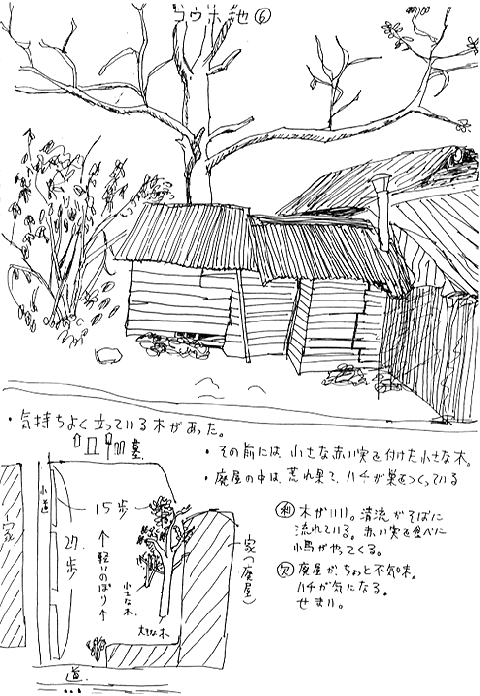 コウホ地⑥
・気持ちよく立っている木があった。
・その前には、小さな赤い実を付けた小さな木。
・廃屋の中は、荒れ果て、ハチが巣をつくっている
墓
小道
15歩
27歩
↑軽いのぼり↑
小さな木
大きな木
家(廃屋)
家
道
利 木がいい。清流がそばに
流れている。赤い実を食べに
小鳥がやってくる。
欠 廃屋が、ちょっと不気味。
ハチが気になる。
せまい。